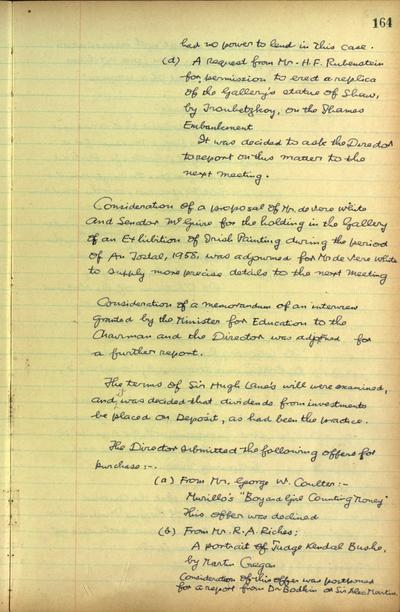 164
had no power to lend in this case.
(d) A request from Mr. H.F. Rubenstein
for permission to erect a replica
of the Gallery's statue of Shaw,
by Troubetzkoy, on the Thames
Embankment
It was decided to ask the Director
to report on this matter to the
next meeting.
Consideration of a proposal of Mr. de Vere White
and Senator McGuire for the holding in the Gallery
of an Exhibition of Irish Painting during the period
of An Tostal, 1958, was adjourned for Mr de Vere White
to supply more precise details to the next meeting
Consideration of a memorandum of an interview
granted by the Minister for Education to the
Chairman and the Director was adjourned for
a further report.
The terms of Sir Hugh Lane's will were examined,
and it was decided that dividends from investments
be placed on Deposit, as had been the practice.
The Director submitted the following offers for
purchase:-.
(a) From Mr. George W. Coulter:-
Murillo's "Boy and Girl Counting Money"
This offer was declined
(b) From Mr. R.A. Riches:
A portrait of Judge Kendal Bushe,
by Martin Cregan
Consideration of this offer was postponed
for a report from Dr Bodkin or Sir Alec Martin.